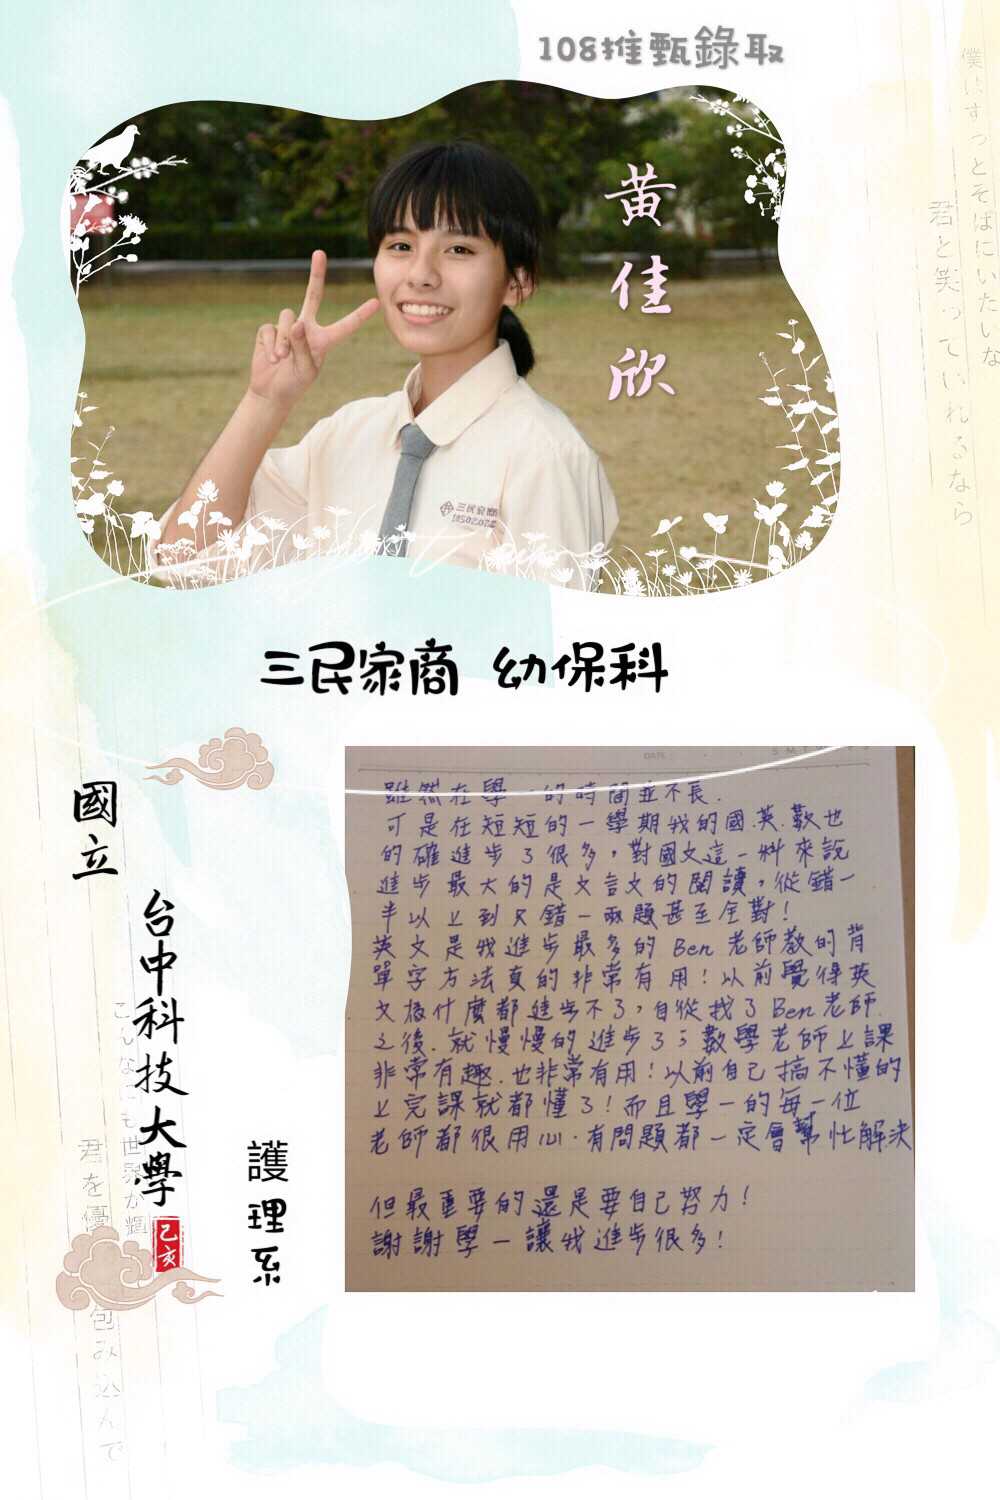 108推甄錄取
黃佳欣
三民家商
僕はずっとそばにいたいな
君と笑っていれるなら
三民家商 幼保科
國立
台中科技大學
乙亥
護理系
君を
包み込んで
DATE
雖然在學一的時間並不長.
可是在短短的一學期我的國.英.數也
的確進步了很多，對國文這一科來說
進步最大的是文言文的閱讀，從錯一
半以上到只錯一兩題甚至全對！
英文是我進步最多的 Ben 老師教的背
單字方法真的非常有用！以前覺得英
文極什麼都進步不了，自從找了Ben老師
之後.就慢慢的進步了；數學老師上課
非常有趣.也非常有用！以前自己搞不懂的
上完課就都懂了！而且學一的每一位
老師都很用心.有問題都一定會幫忙解決
但最重要的還是要自己努力！
謝謝學一讓我進步很多！